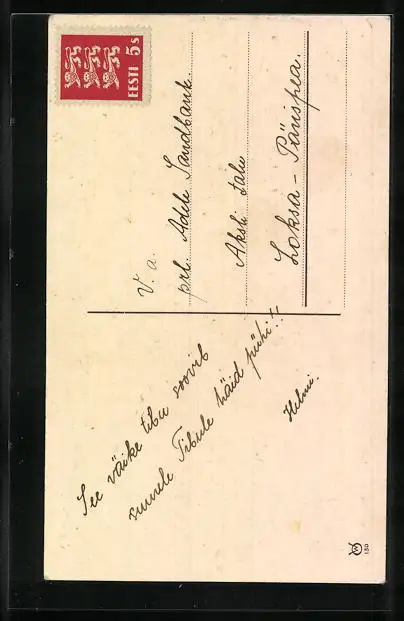 EESTI 5 s
V. a.
prl. Adele Sandbank.
Aksli talu
Loksa – Pärispea.
See väike tibu soovib
suurele Tibule häid pühi!!
Helmi.
130